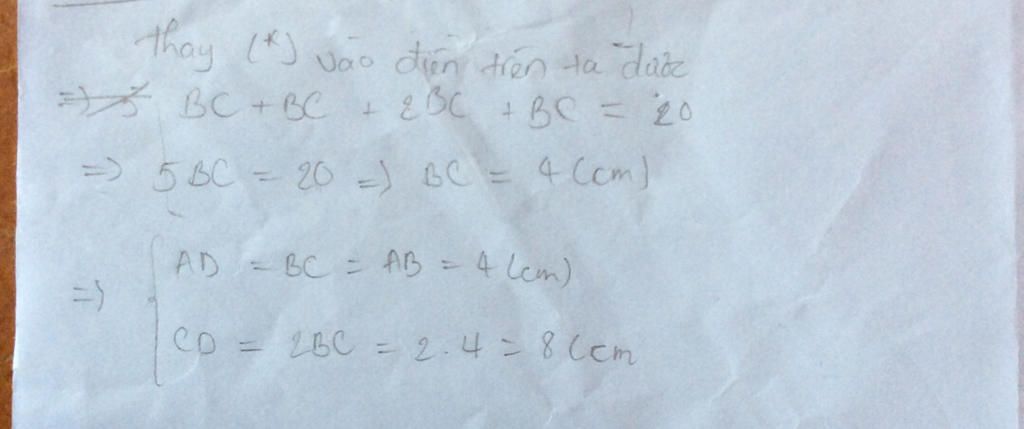 thay (*) vào điện trên ta được
=> 5 BC + BC + 2BC + BC = 20
=> 5BC = 20 => BC = 4 (cm)
AD = BC = AB = 4 (cm)
=>
CD = 2BC = 2.4 = 8 (cm